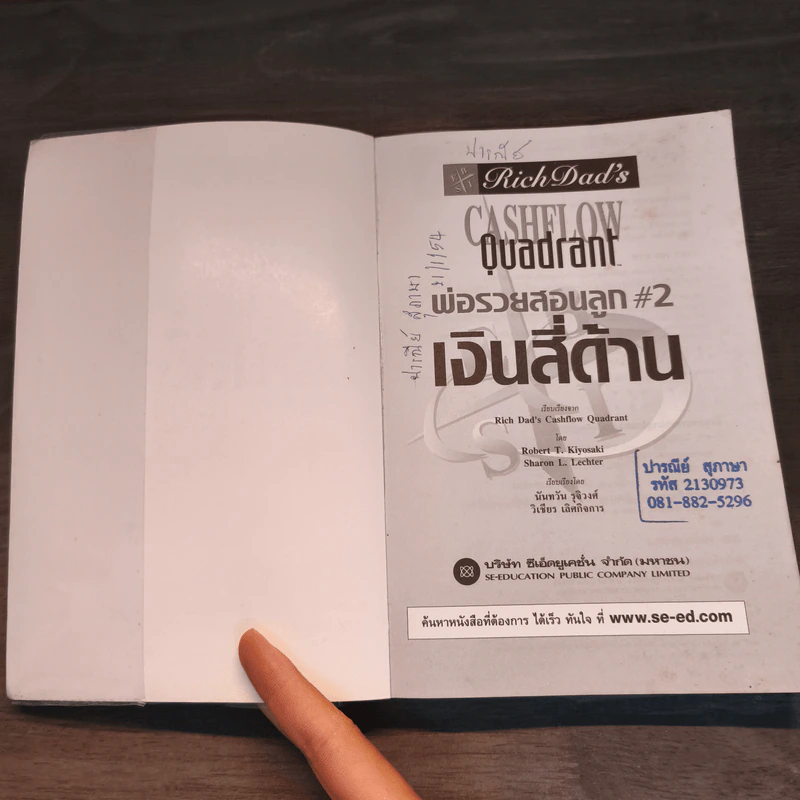 ปารณีย์
Rich Dad's
CASHFLOW
Quadrant
พ่อรวยสอนลูก #2
เงินสี่ด้าน
ปารณีย์ สุภาษา
เรียบเรียงจาก
Rich Dad's Cashflow Quadrant
โดย
Robert T. Kiyosaki
Sharon L. Lechter
เรียบเรียงโดย
นันทวัน รุจิวงศ์
วิเชียร เลิศกิจการ
ปารณีย์ สุภาษา
รหัส 2130973
081-882-5296
บริษัท ซีเอ็ดยูเคชั่น จำกัด (มหาชน)
SE-EDUCATION PUBLIC COMPANY LIMITED
ค้นหาหนังสือที่ต้องการ ได้เร็ว ทันใจ ที่ www.se-ed.com